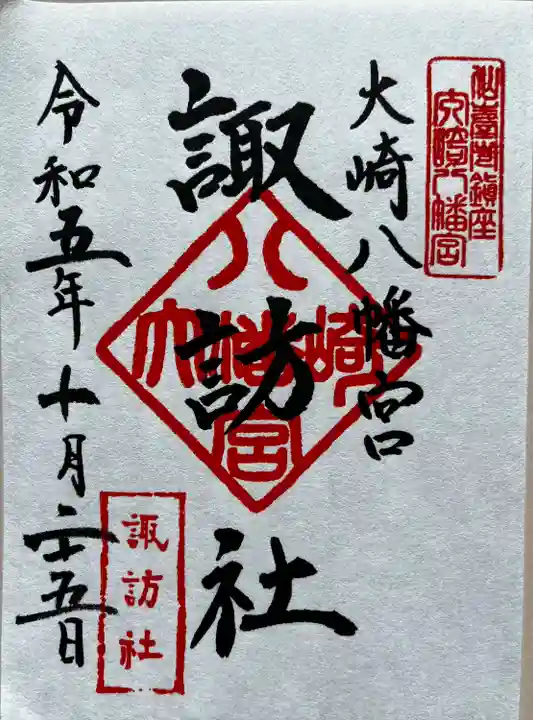 仙臺市鎮座
大崎八幡宮
大崎八幡宮
諏訪社
八
大崎
幡
宮
令和五年十月二十五日
諏訪社